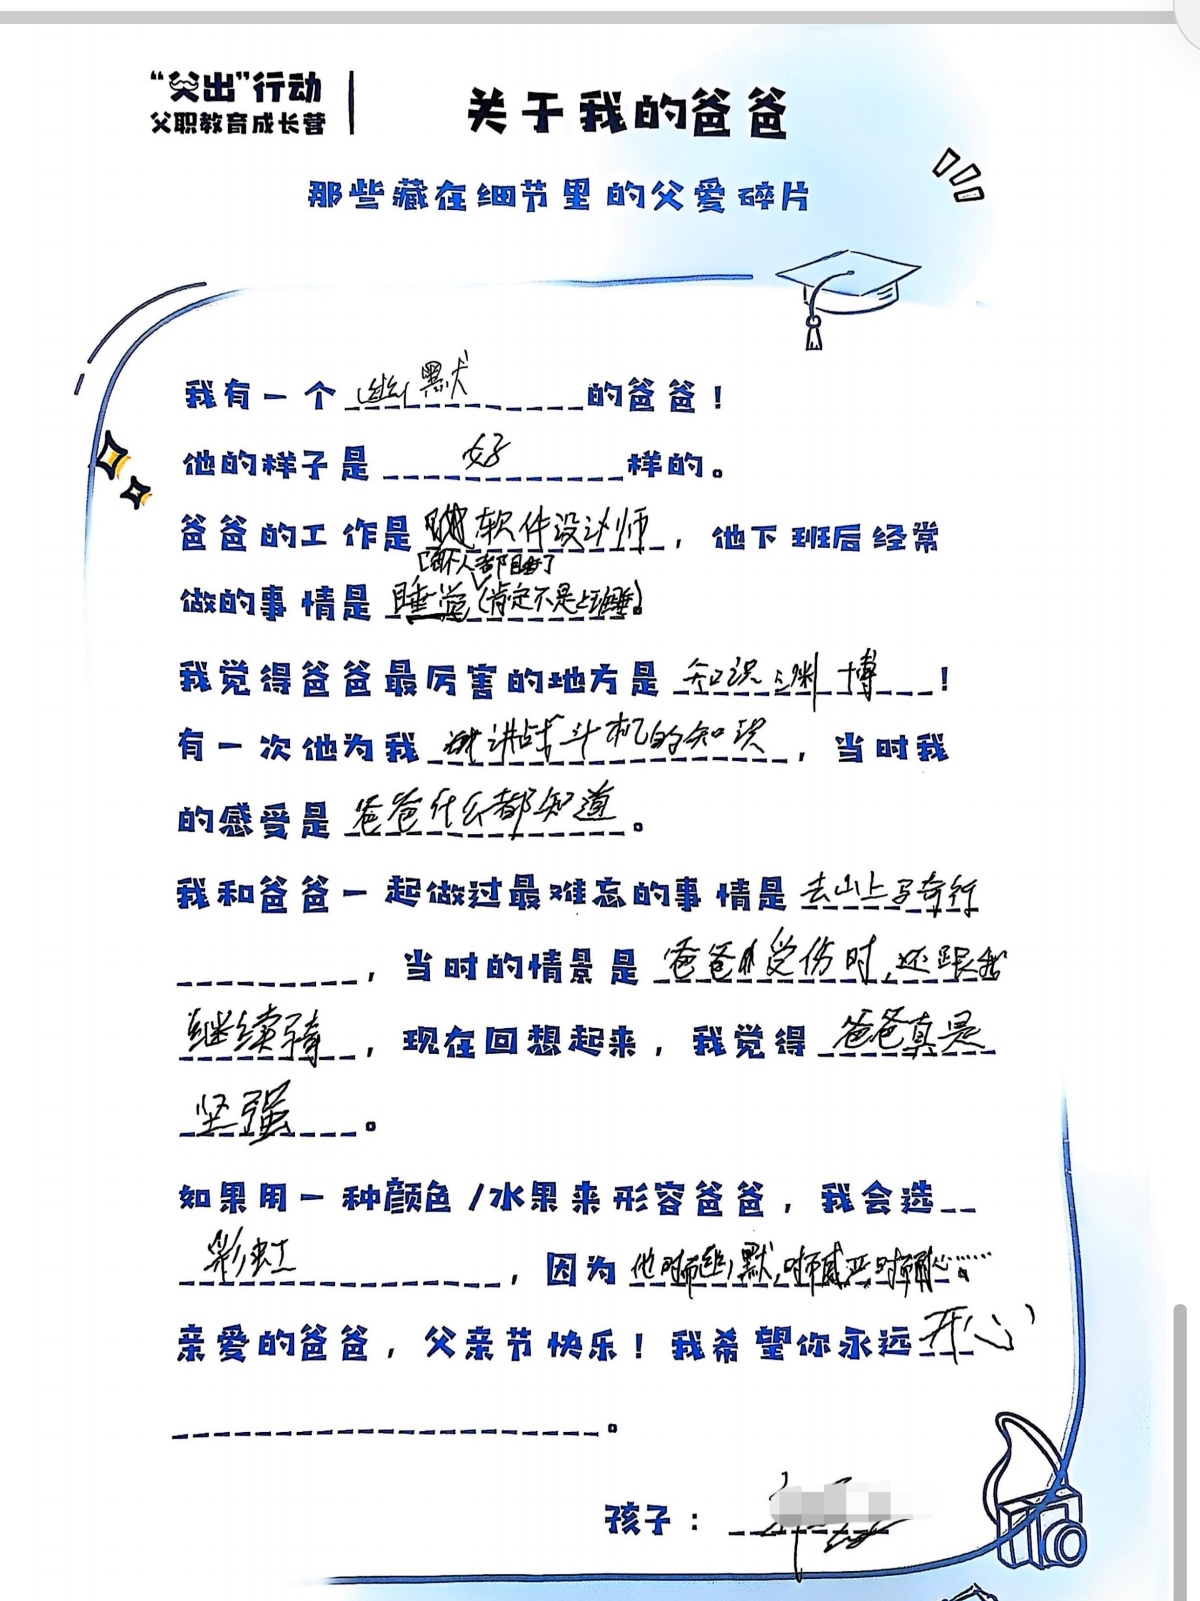 “父出”行动
父职教育成长营
关于我的爸爸
那些藏在细节里的父爱碎片
我有一个幽默的爸爸！
他的样子是好样的。
爸爸的工作是软件设计师，他下班后经常
都睡了
做的事情是睡觉(肯定不是上班睡)。
我觉得爸爸最厉害的地方是知识渊博！
有一次他为我讲战斗机的知识，当时我
的感受是爸爸什么都知道。
我和爸爸一起做过最难忘的事情是去山上骑行
，当时的情景是爸爸受伤时,还跟我
继续骑，现在回想起来，我觉得爸爸真是
坚强。
如果用一种颜色/水果来形容爸爸，我会选
彩虹，因为他时而幽默,时而威严,时而耐心……。
亲爱的爸爸，父亲节快乐！我希望你永远开心
。
孩子：